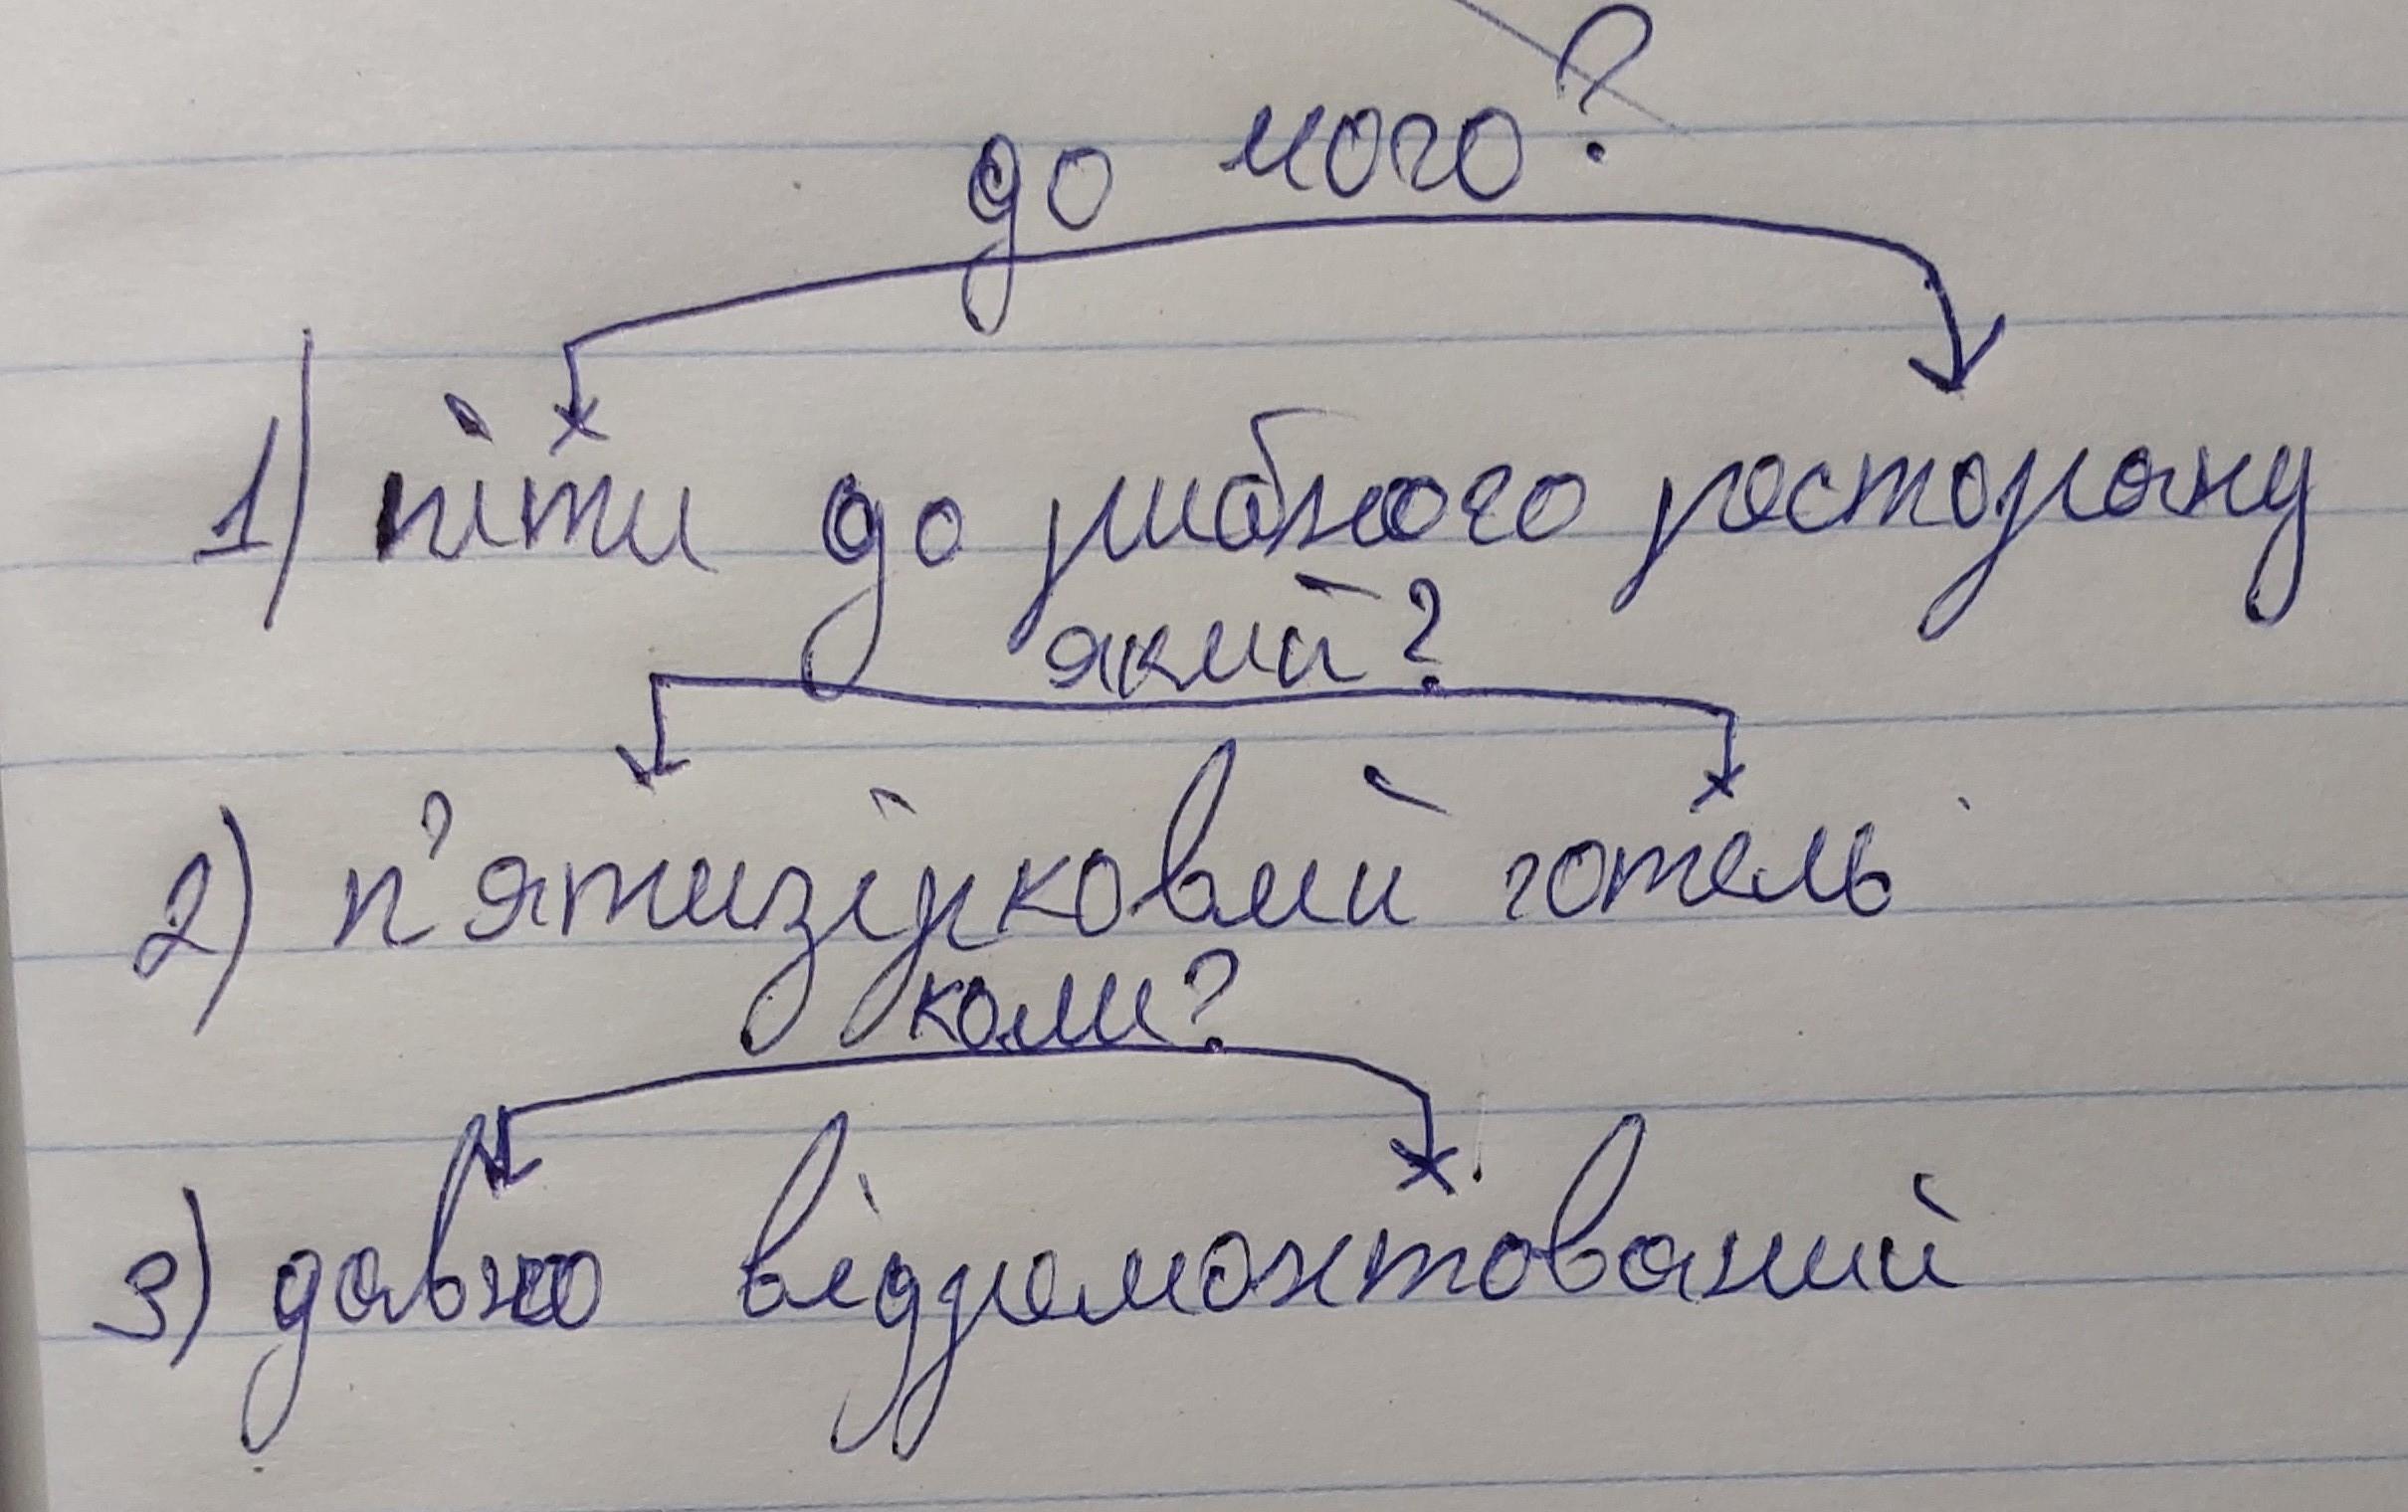 до чого?
1) піти до рибного ресторану
який?
2) п'ятизірковий готель
коли?
3) давно відремонтований